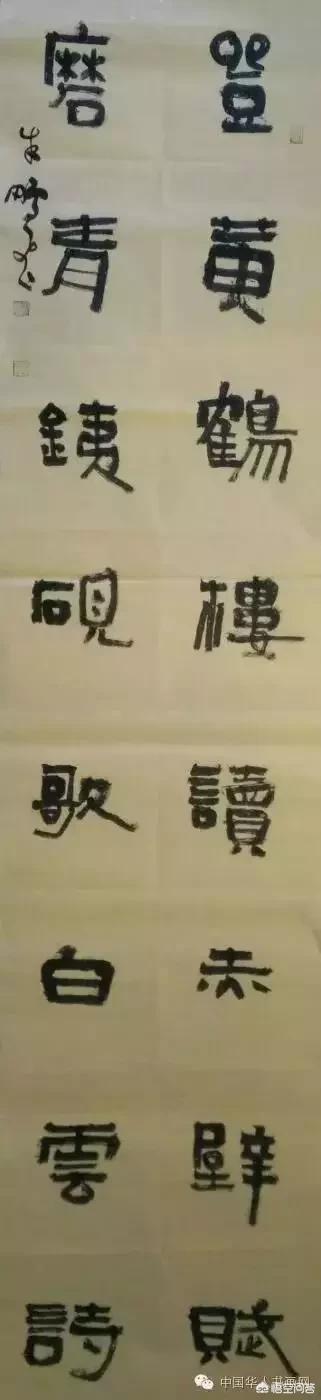 登黄鶴樓讀赤壁賦
磨青銕硯歌白雲詩
中国华人书画网
悟空问答